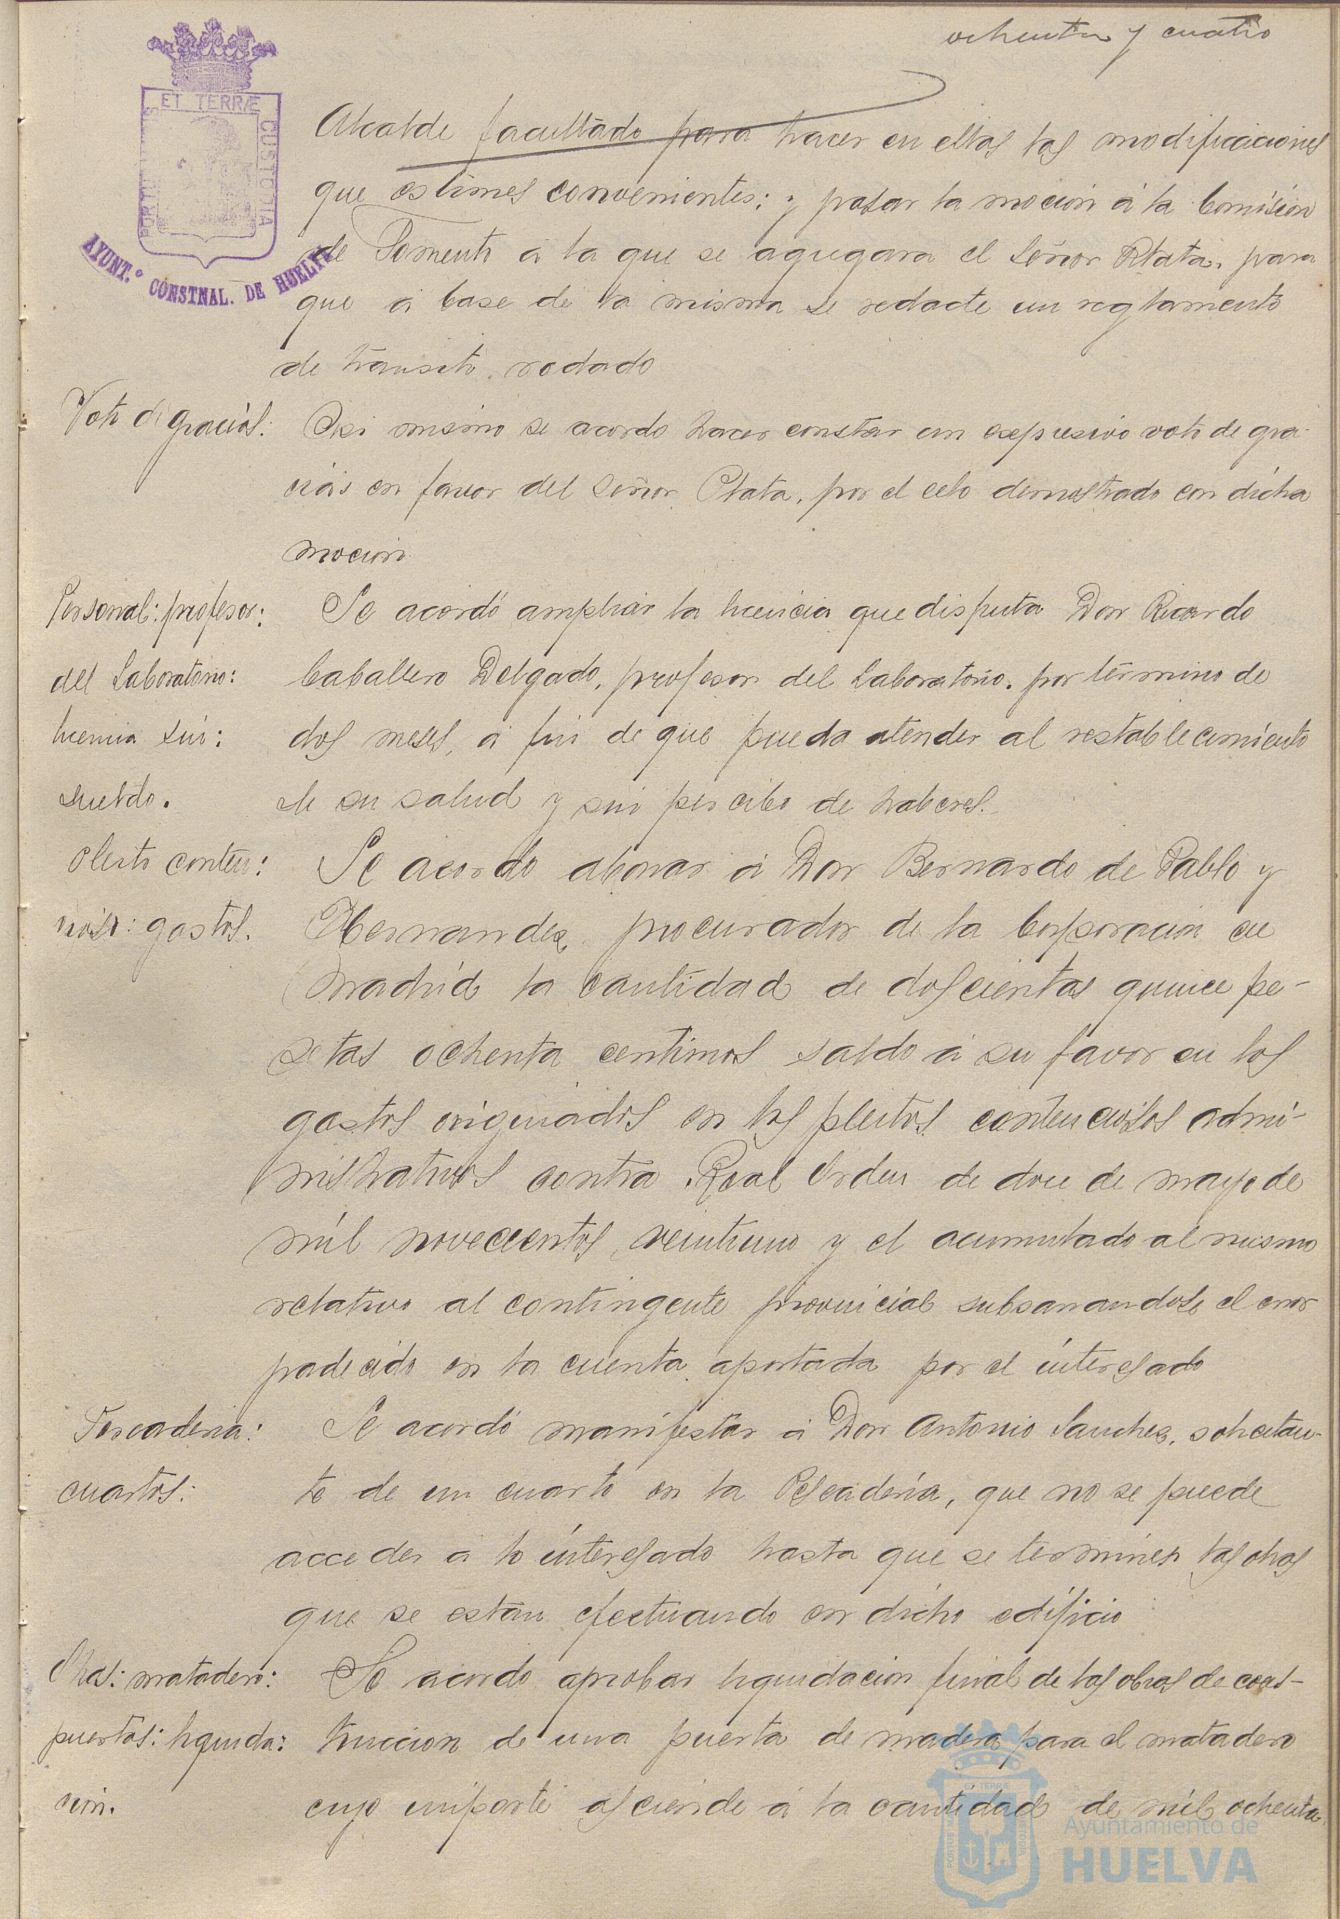 ochenta y cuatro
PORTUS MARIS
ET TERRÆ
CUSTODIA
AYUNT.º CONSTNAL. DE HUELVA
Alcalde facultado para hacer en ellas las modificaciones
que estimes convenientes; y pasar la mocion á la Comisión
de Fomento á la que se agregara el Señor Plata, para
que á base de la misma se redacte un reglamento
de transito rodado
Voto de gracias:
Asi mismo se acordo hacer constar un expresivo voto de gra-
cias en favor del Señor Plata, por el celo demostrado con dicha
mocion
Personal: profesor:
del Laboratorio:
licencia sin:
sueldo.
Se acordó ampliar la licencia que disfruta Don Ricardo
Caballero Delgado, profesor del Laboratorio, por término de
dos meses, á fin de que pueda atender al restablecimiento
de su salud y sin percibo de haberes.
Pleito conten:
cioso: gastos.
Se acordo abonar á Don Bernardo de Pablo y
Hernandez, procurador de la Corporacion en
Madrid la cantidad de doscientas quince pe-
setas ochenta centimos saldo á su favor en los
gastos originados en los pleitos contenciosos admi-
nistrativos contra Real Orden de doce de mayo de
mil novecientos veintiuno y el acumulado al mismo
relativo al contingente provincial subsanandose el error
padecido en la cuenta aportada por el interesado
Pescaderia:
cuartos:
Se acordó manifestar á Don Antonio Sanchez, solicitan-
te de un cuarto en la Pescadería, que no se puede
acceder á lo interesado hasta que se terminen las obras
que se estan efectuando en dicho edificio
Obras: matadero:
puertas: liquida:
cion.
Se acordo aprobar liquidacion final de las obras de cons-
truccion de una puerta de madera para el matadero
cuyo importe asciende á la cantidad de mil ochenta
Ayuntamiento de
HUELVA